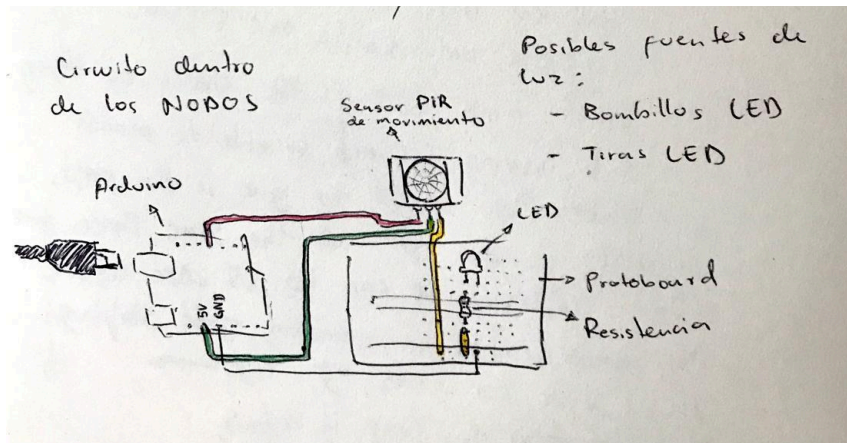 Circuito dentro
de los NODOS
Posibles fuentes de
luz:
- Bombillos LED
- Tiras LED
Sensor PIR
de movimiento
Arduino
LED
Protoboard
Resistencia
5V
GND